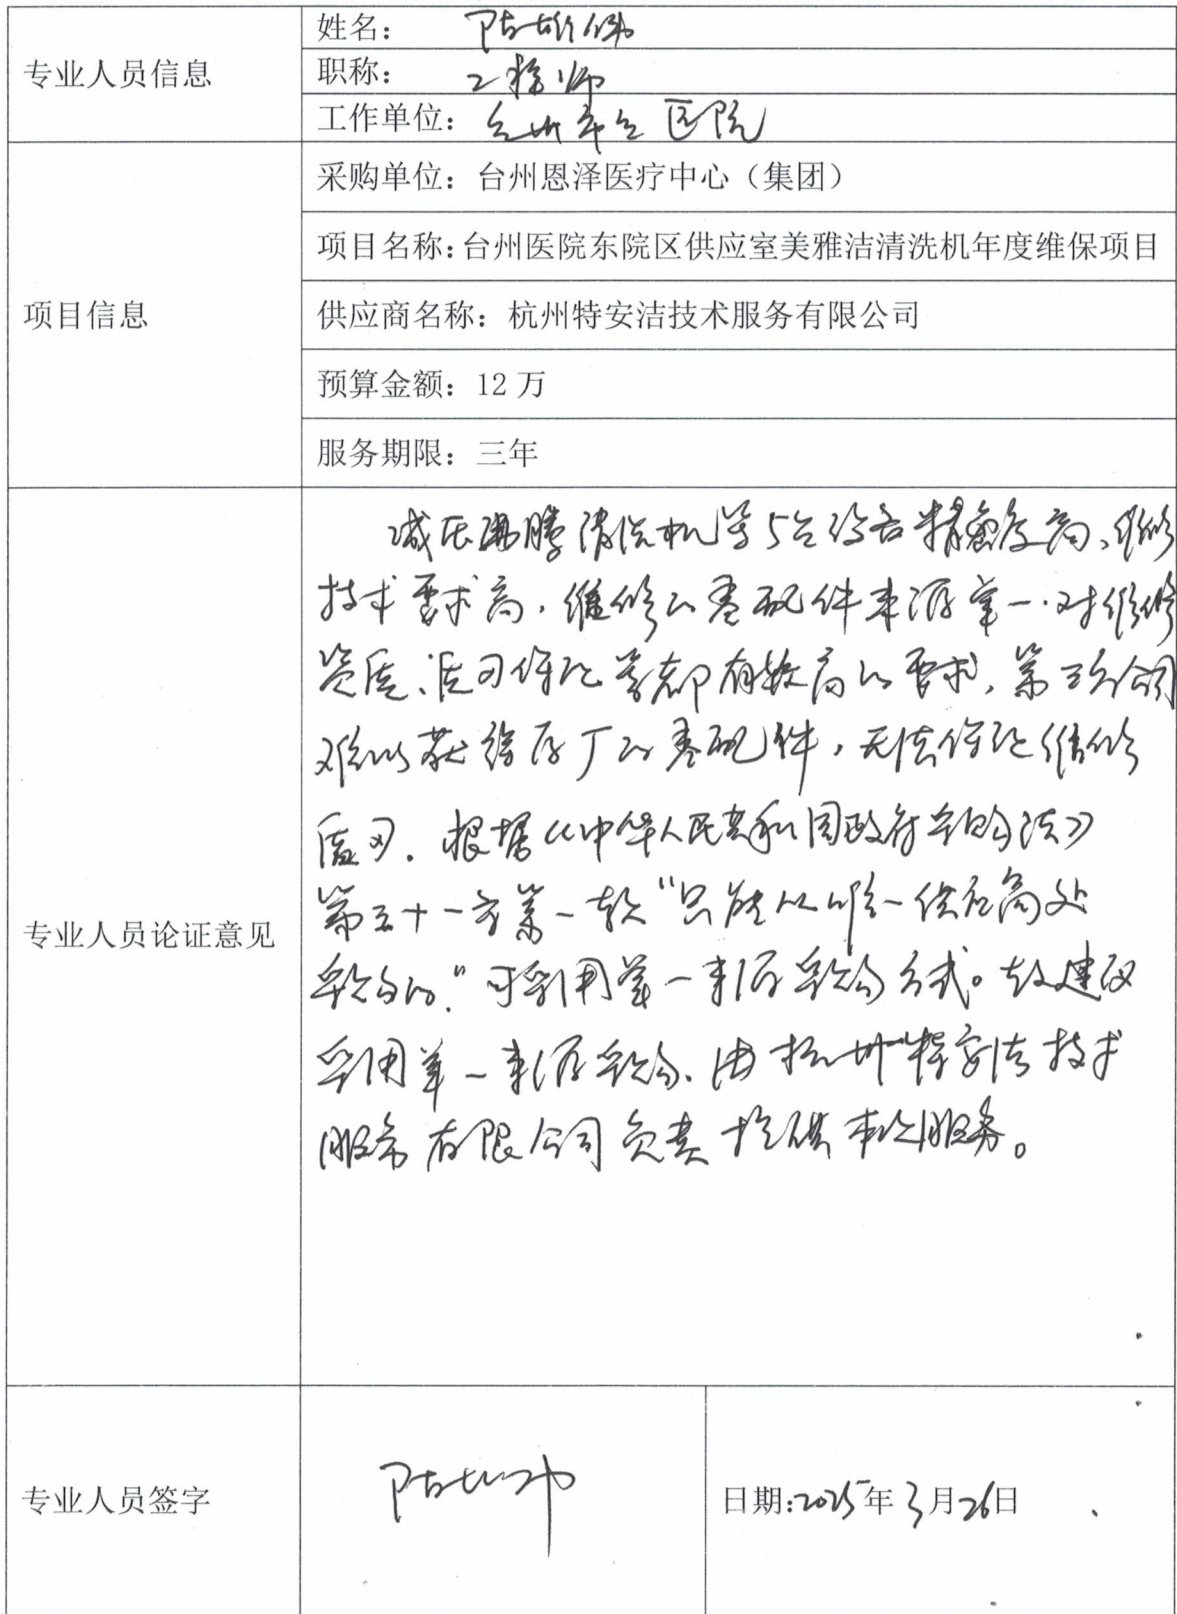 专业人员信息
姓名：
职称：工程师
工作单位：台州市立医院
项目信息
采购单位：台州恩泽医疗中心（集团）
项目名称：台州医院东院区供应室美雅洁清洗机年度维保项目
供应商名称：杭州特安洁技术服务有限公司
预算金额：12万
服务期限：三年
专业人员论证意见
减压沸腾清洗机等5台设备精密度高、维修
技术要求高，维修的零配件来源单一.对维修
资质、质量保证等都有较高的要求，第三方公司
难以获得原厂的零配件，无法保证维修
质量. 根据《中华人民共和国政府采购法》
第三十一条第一款"只能从唯一供应商处
采购的."可采用单一来源采购方式。故建议
采用单一来源采购、由杭州特安洁技术
服务有限公司负责提供本次服务。
专业人员签字
日期:2025年3月26日